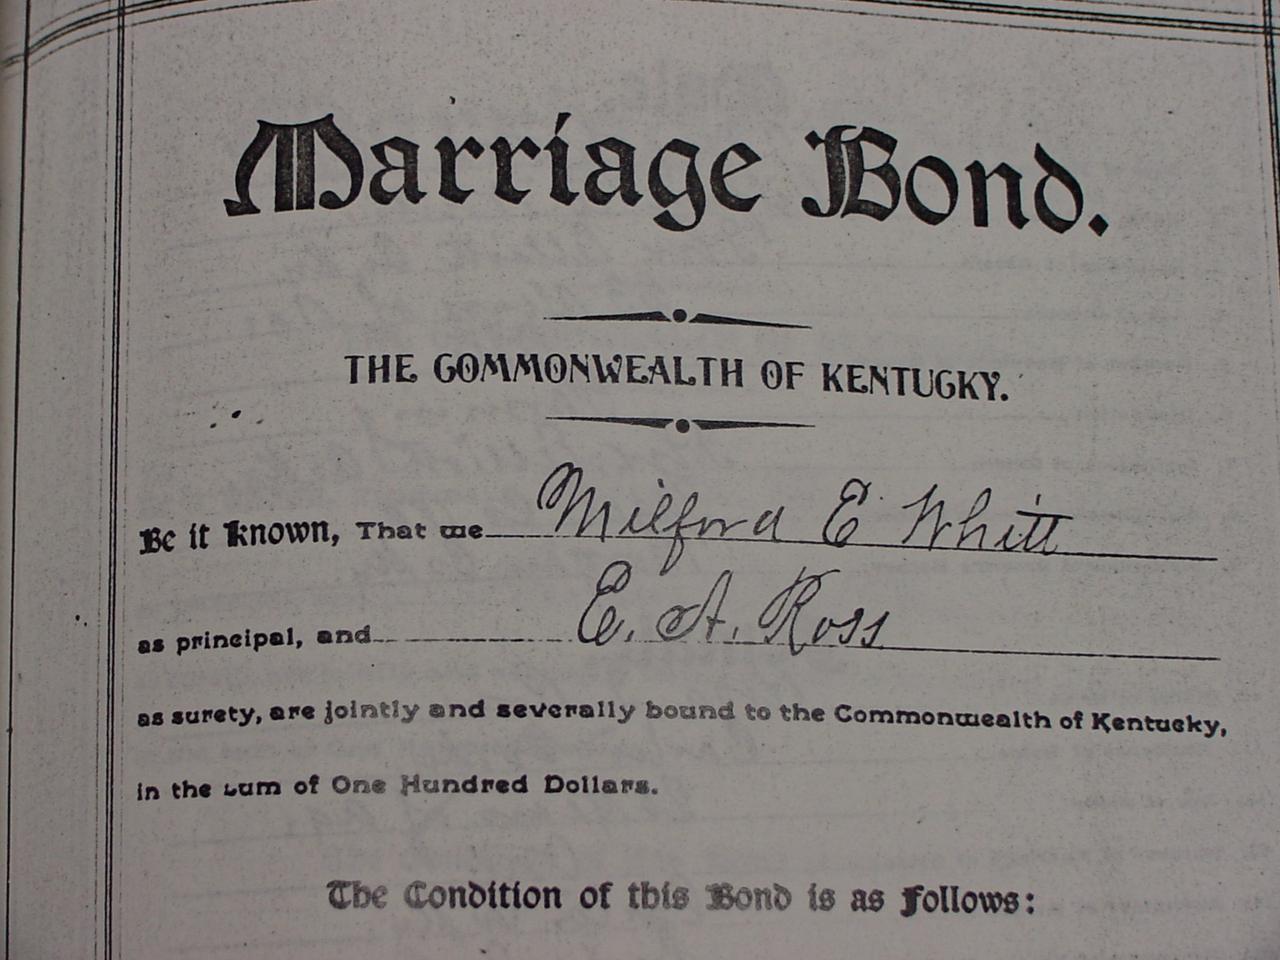 Marriage Bond.
THE COMMONWEALTH OF KENTUCKY.
Be it known, That we Milford E Whitt
as principal, and E. A. Ross
as surety, are jointly and severally bound to the Commonwealth of Kentucky,
in the sum of One Hundred Dollars.
The Condition of this Bond is as follows: